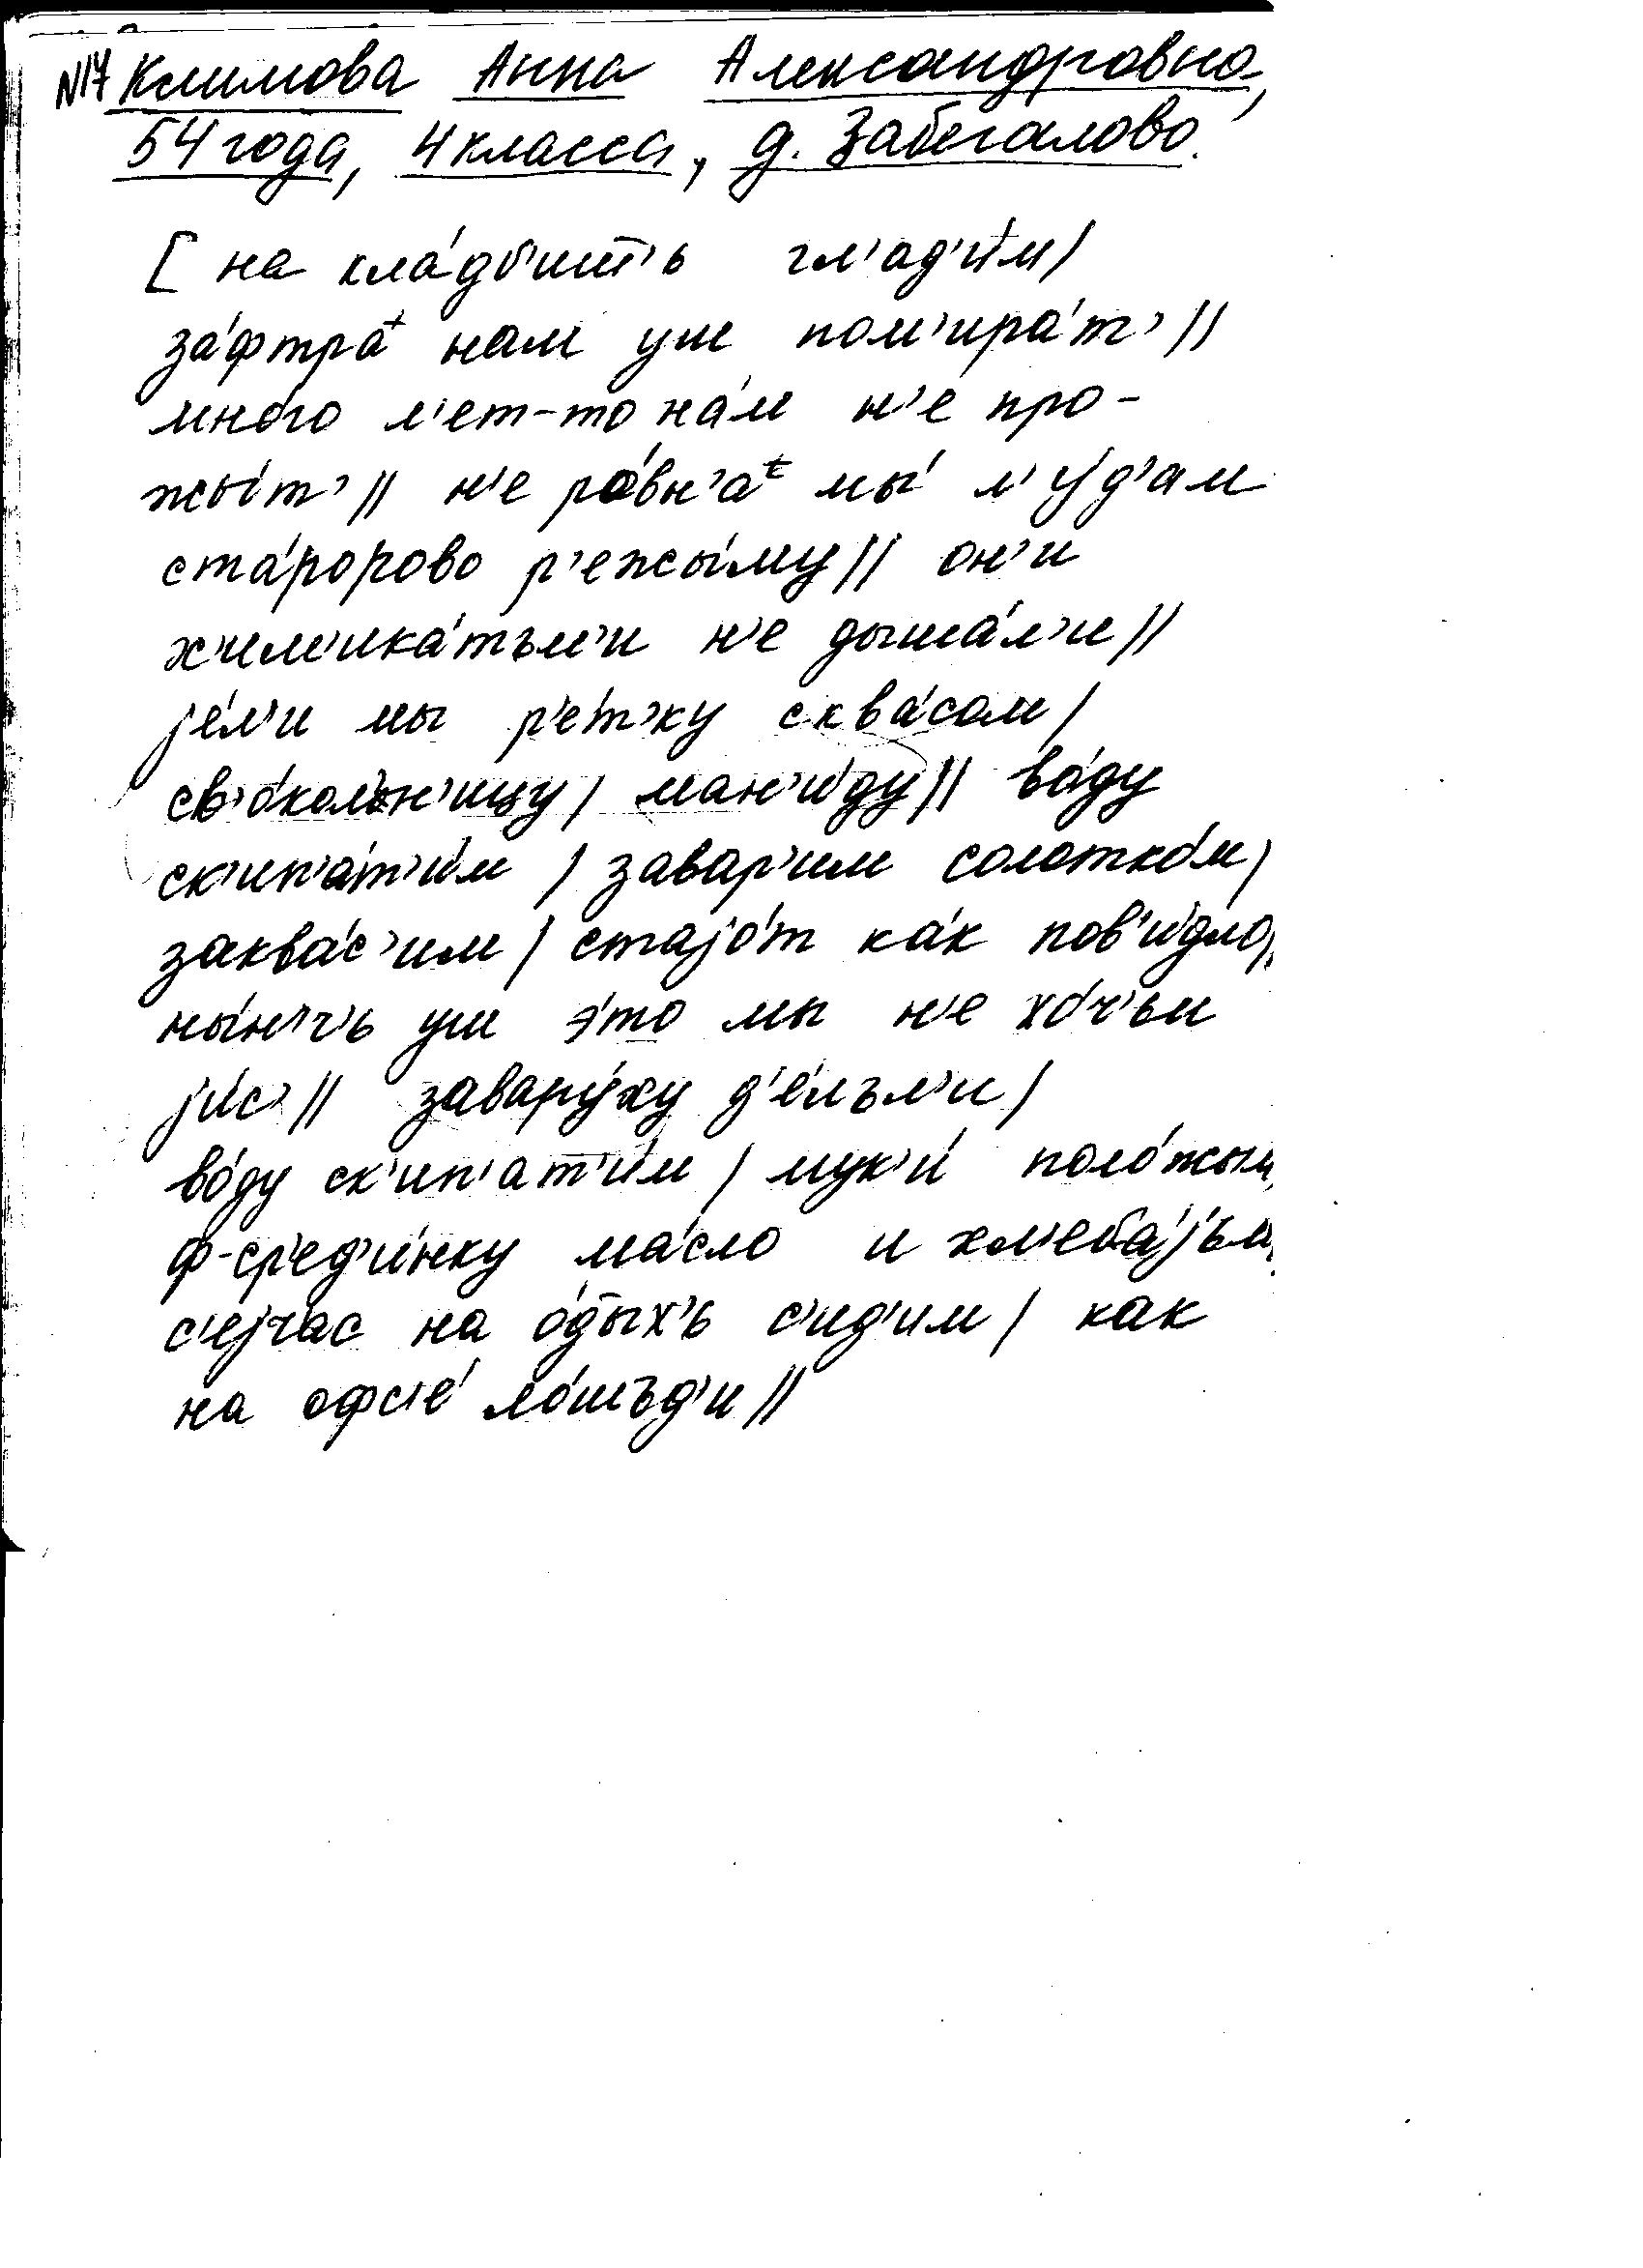 N17 Климова Анна Александровна,
54 года, 4 класса, д. Забегалово.
[ на кла́дб'ит'ь гл'ад'и́м /
за́фтра+ нам уш пом'ира́т' //
мно́го л'ет-то на́м н'е про-
жы́т' // н'е ро́вн'а+ мы́ л'у́д'ам
ста́ророво р'ежы́му // он'и
х'им'ика́тъм'и н'е дыша́л'и //
jе́л'и мы р'е́т'ку сква́сом /
св'о́кольн'ицу / ман'и́ду // во́ду
ск'ип'а́т'и́м / завар'им солотко́м /
заква́с'им / стаjо́т ка́к пов'и́дло /
ны́н'ч'ь уш э́то мы н'е хо́ч'ьм
jи́с' // завару́ху д'е́лъл'и /
во́ду ск'ип'ат'и́м / мук'и́ поло́жым
ф-ср'ед'и́нку ма́сло и хл'еба́jьм
с'еjча́с на о́дых'ь с'ид'им / как
на офс'е́ ло́шъд'и //